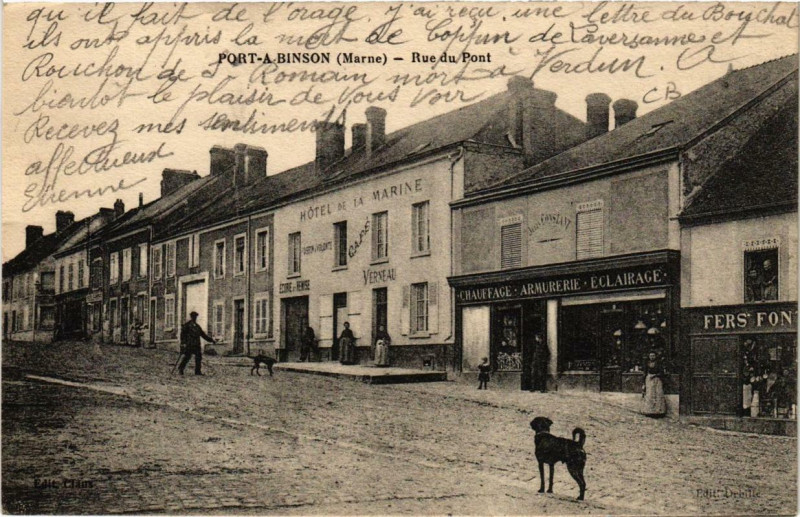 qu il fait de l'orage. J'ai reçu une lettre du Bouchat
ils ont appris la mort de de Laversanne et
PORT-A BINSON (Marne) — Rue du Pont
Rouchon de S Romain mort à Verdun. A
bientôt le plaisir de Vous Voir
CB
Recevez mes sentiments
affectueux
Etienne
HÔTEL DE LA MARINE
CAFÉ
VERNEAU
ÉCURIE & REMISE
CONSTANT
CHAUFFAGE · ARMURERIE · ÉCLAIRAGE
FERS FON
Edit.
Edit. Debitte